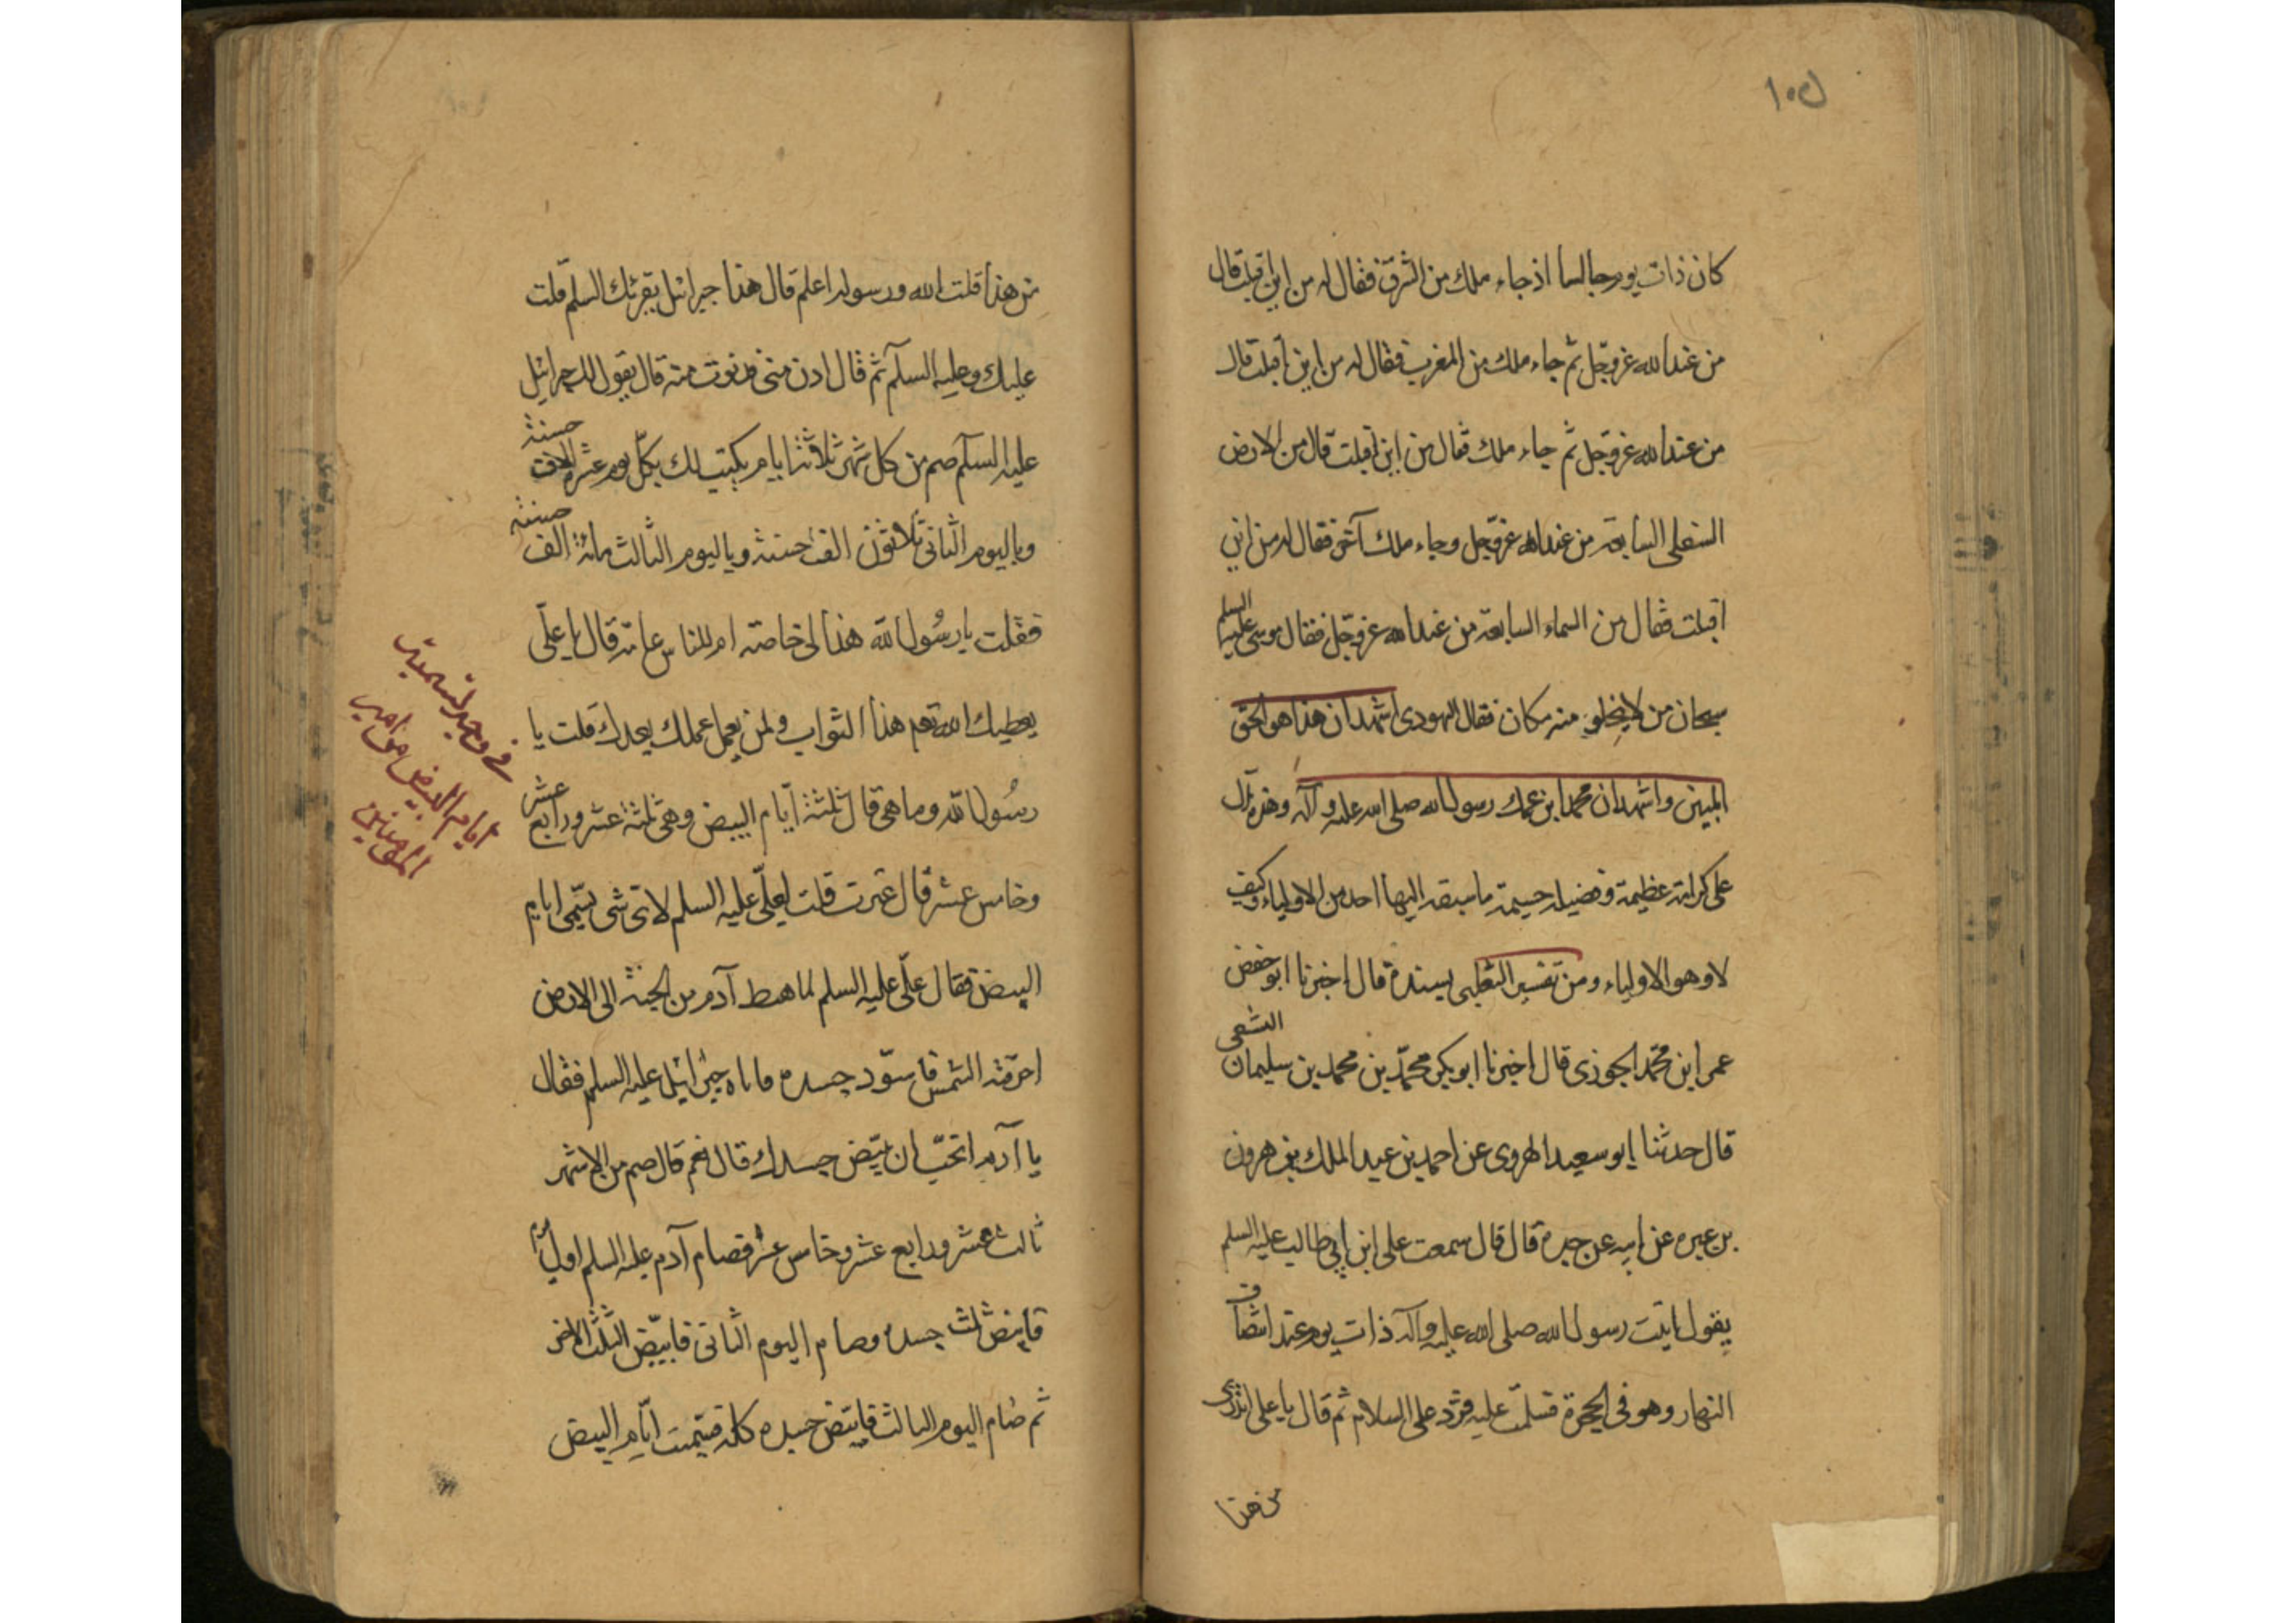 ١٠٥
كان ذات يوم جالسا اذ جاء ملك من الشرق فقال له من اين اقبلت قال
من عند الله عز وجل ثم جاء ملك من المغرب فقال له من اين اقبلت قال
من عند الله عز وجل ثم جاء ملك فقال من اين اقبلت قال من الارض
السفلى السابعة من عند الله عز وجل وجاء ملك آخر فقال له من اين
اقبلت فقال من السماء السابعة من عند الله عز وجل فقال موسى عليه السلم
سبحان من لا يخلو منه مكان فقال اليهودى اشهد ان هذا هو الحق
المبين واشهد ان محمدا ابن عمك رسول الله صلى الله عليه وآله وهذه تدل
على كرامة عظيمة وفضيلة جسيمة ما سبقه اليها احد من الاولياء وكيف
لا وهو الاولياء ومن تفسير الثعلبى بسنده قال اخبرنا ابو حفص
عمر ابن محمد الجوزى قال اخبرنا ابو بكر محمد بن محمد بن سليمان
قال حدثنا ابو سعيد الهروى عن احمد بن عبد الملك بن هرون
بن عبره عن ابيه عن جده قال قال سمعت على ابن ابي طالب عليه السلم
يقول اتيت رسول الله صلى الله عليه وآله ذات يوم عند انتصاف
النهار وهو فى الحجرة فسلمت عليه فرد على السلام ثم قال يا على اتدرى
من هذا
من هذا قلت الله ورسوله اعلم قال هذا جبرائيل يقرئك السلم قلت
عليك وعليه السلام ثم قال ادن منى فدنوت منه قال يقول لك جبرائيل
عليه السلام صم من كل شهر ثلاثة ايام يكتب لك بكل يوم عشرة الاف حسنة
وباليوم الثانى ثلاثون الف حسنة وباليوم الثالث مائة الف حسنة
فقلت يا رسول الله هذا لى خاصة ام للناس عامة قال يا على
يعطيك الله نعم هذا الثواب ولمن يعمل عملك بعدك قلت يا
رسول الله وما هى قال ثلثة ايام البيض وهى ثلثة عشر ورابع عشر
وخامس عشر قال قلت لعلى عليه السلم لاى شى يسمى ايام
البيض فقال على عليه السلم لما هبط آدم من الجنة الى الارض
احرقته الشمس فاسود جسده فاتاه جبرائيل عليه السلم فقال
يا آدم اتحب ان يبيض جسدك قال نعم قال صم من الاشهر
ثالث عشر ورابع عشر وخامس عشر فصام آدم عليه السلم اول
فابيض ثلث جسده وصام اليوم الثانى فابيض الثلث الاخر
ثم صام اليوم الثالث فابيض جسده كله فسميت ايام البيض
فى وجه تسمية
ايام البيض من امير
المؤمنين